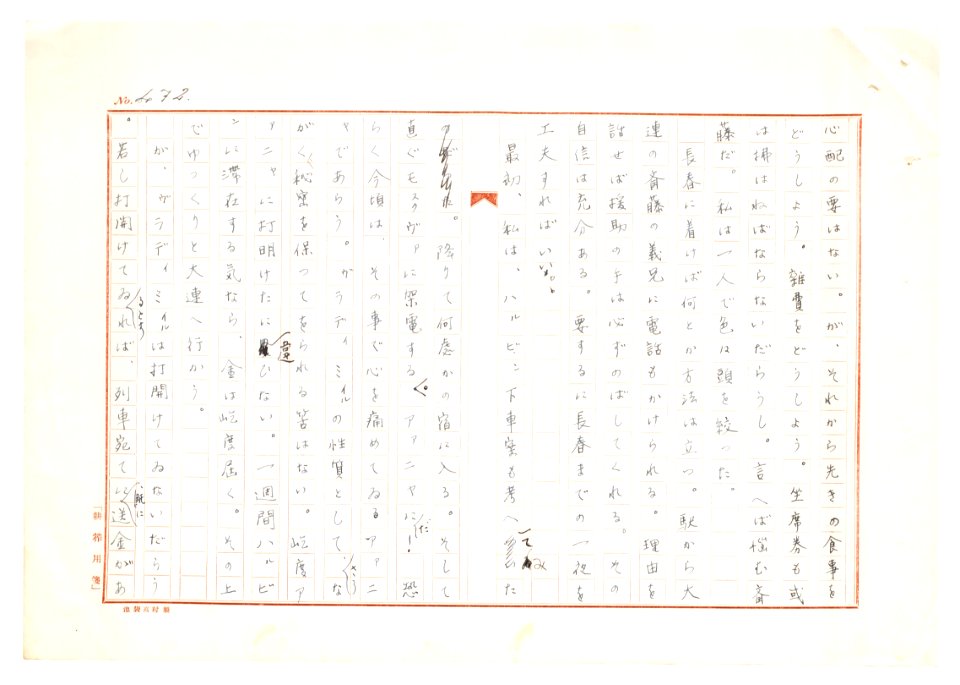 No. 472.
心配の要はない。が、それから先きの食事を
どうしよう。雑費をどうしよう。坐席券も或
は掃はねばならないだらうし。言へば悩む斎
藤だ。私は一人で色は頭を絞った。
長春に着けば何とか方法は立つ。駅から大
連の斎藤の義兄に電話もかけられる。理由を
話せば援助の手は必ずのばしてくれる。その
自信は充分ある。要するに長春までの一夜を
工夫すればいい。
最初、私は、ハルビン下車案も考へてみた
。降りて何処かの宿に入る。そして
真ぐモスクヴァに架電する。アァニャにだ！恐
らく今頃は、その事で心を痛めてゐるアァニ
ャであらう。ヴラディミイルの性質として、さう
がく秘密を保つてをられる筈はない。屹度ア
アニャに打明けたに違ひない。一週間ハルビ
ンに滞在する気なら、金は屹度届く。その上
でゆっくりと大連へ行かう。
が、ヴラディミイルは打開けてゐないだらう
。若し打開けてゐるとすれば、列車宛てに、既に送金があ
「耕筰用箋」